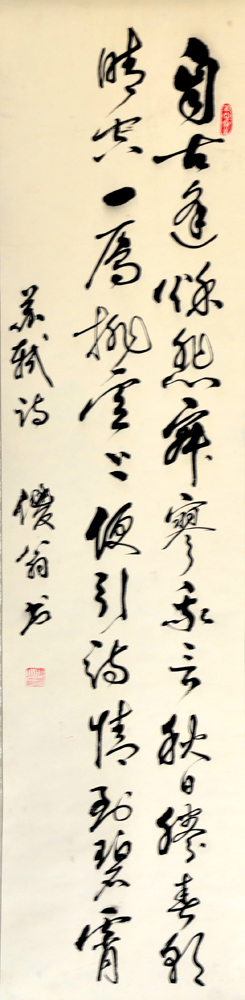 自古逢秋悲寂寥我言秋日勝春朝
晴空一鶴排雲上便引詩情到碧霄
蘇軾詩 翁书